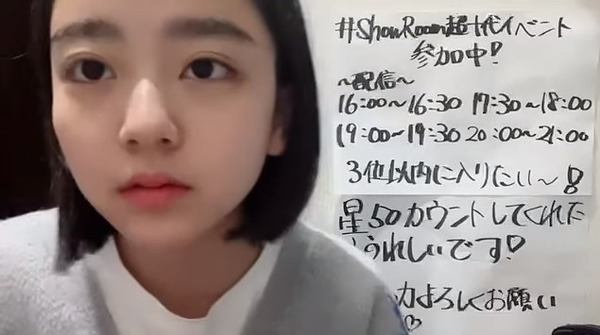 #ShowRoom超十代イベント
参加中!
〜配信〜
16:00〜16:30 17:30〜18:00
19:00〜19:30 20:00〜21:00
3位以内に入りたい〜!
星50カウントしてくれた
うれしいです!
力よろしくお願い
♡